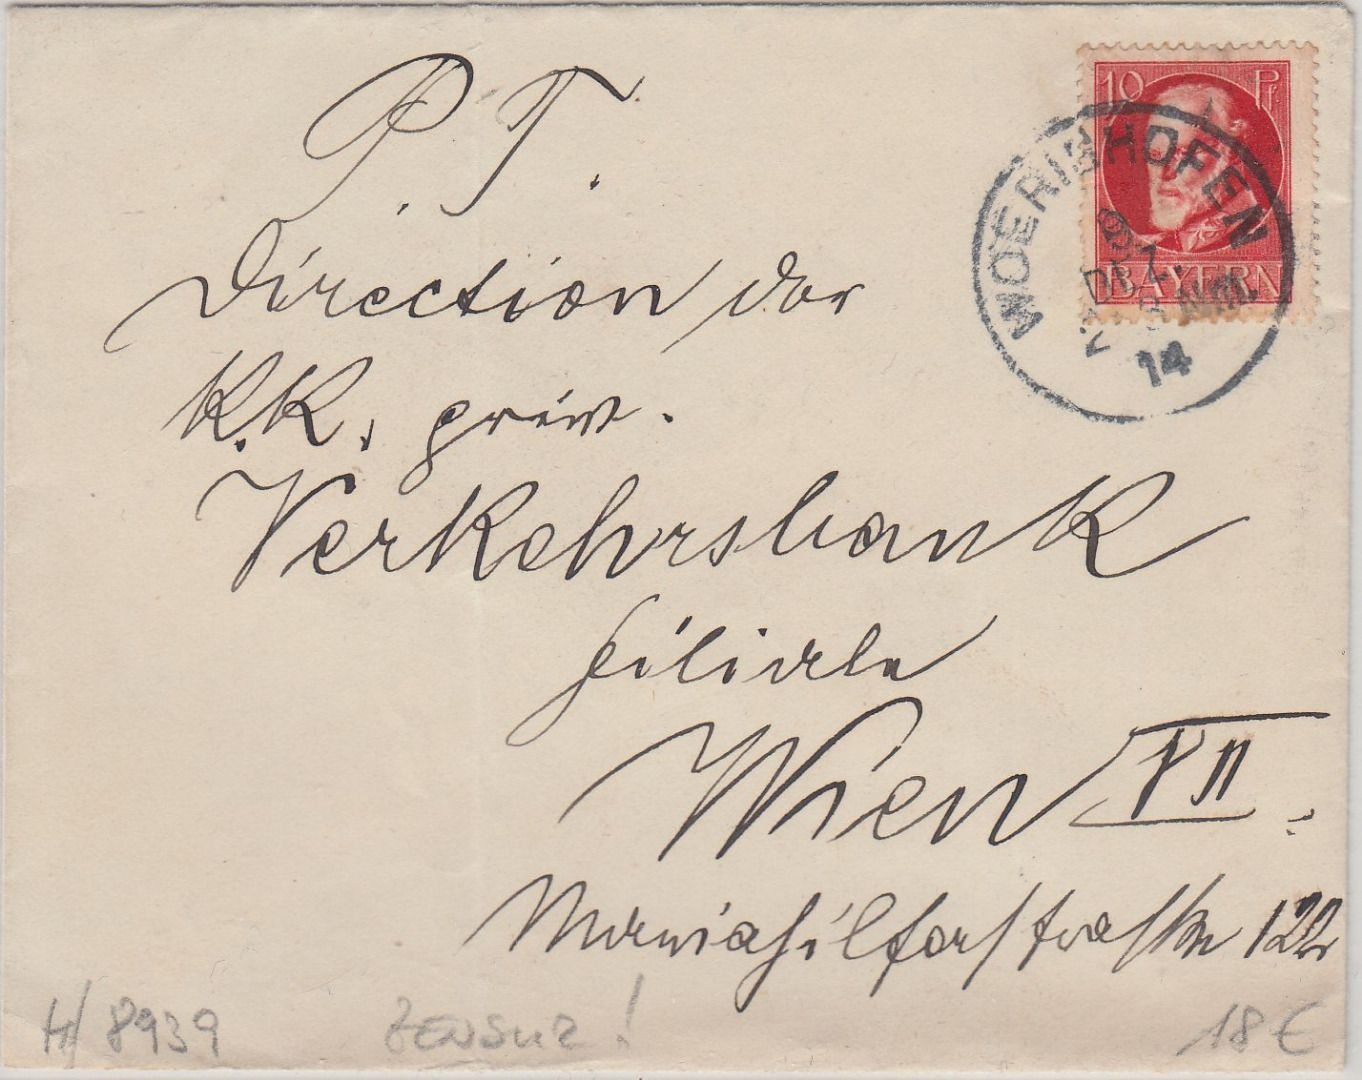 10 Pf.
BAYERN
WOERISHOFEN
DEZ.
14
P. T.
Direction der
K.K. priv.
Verkehrsbank
Filiale
Wien VII.
Mariahilferstrasse 122
H/8939 ZENSUR! 18€